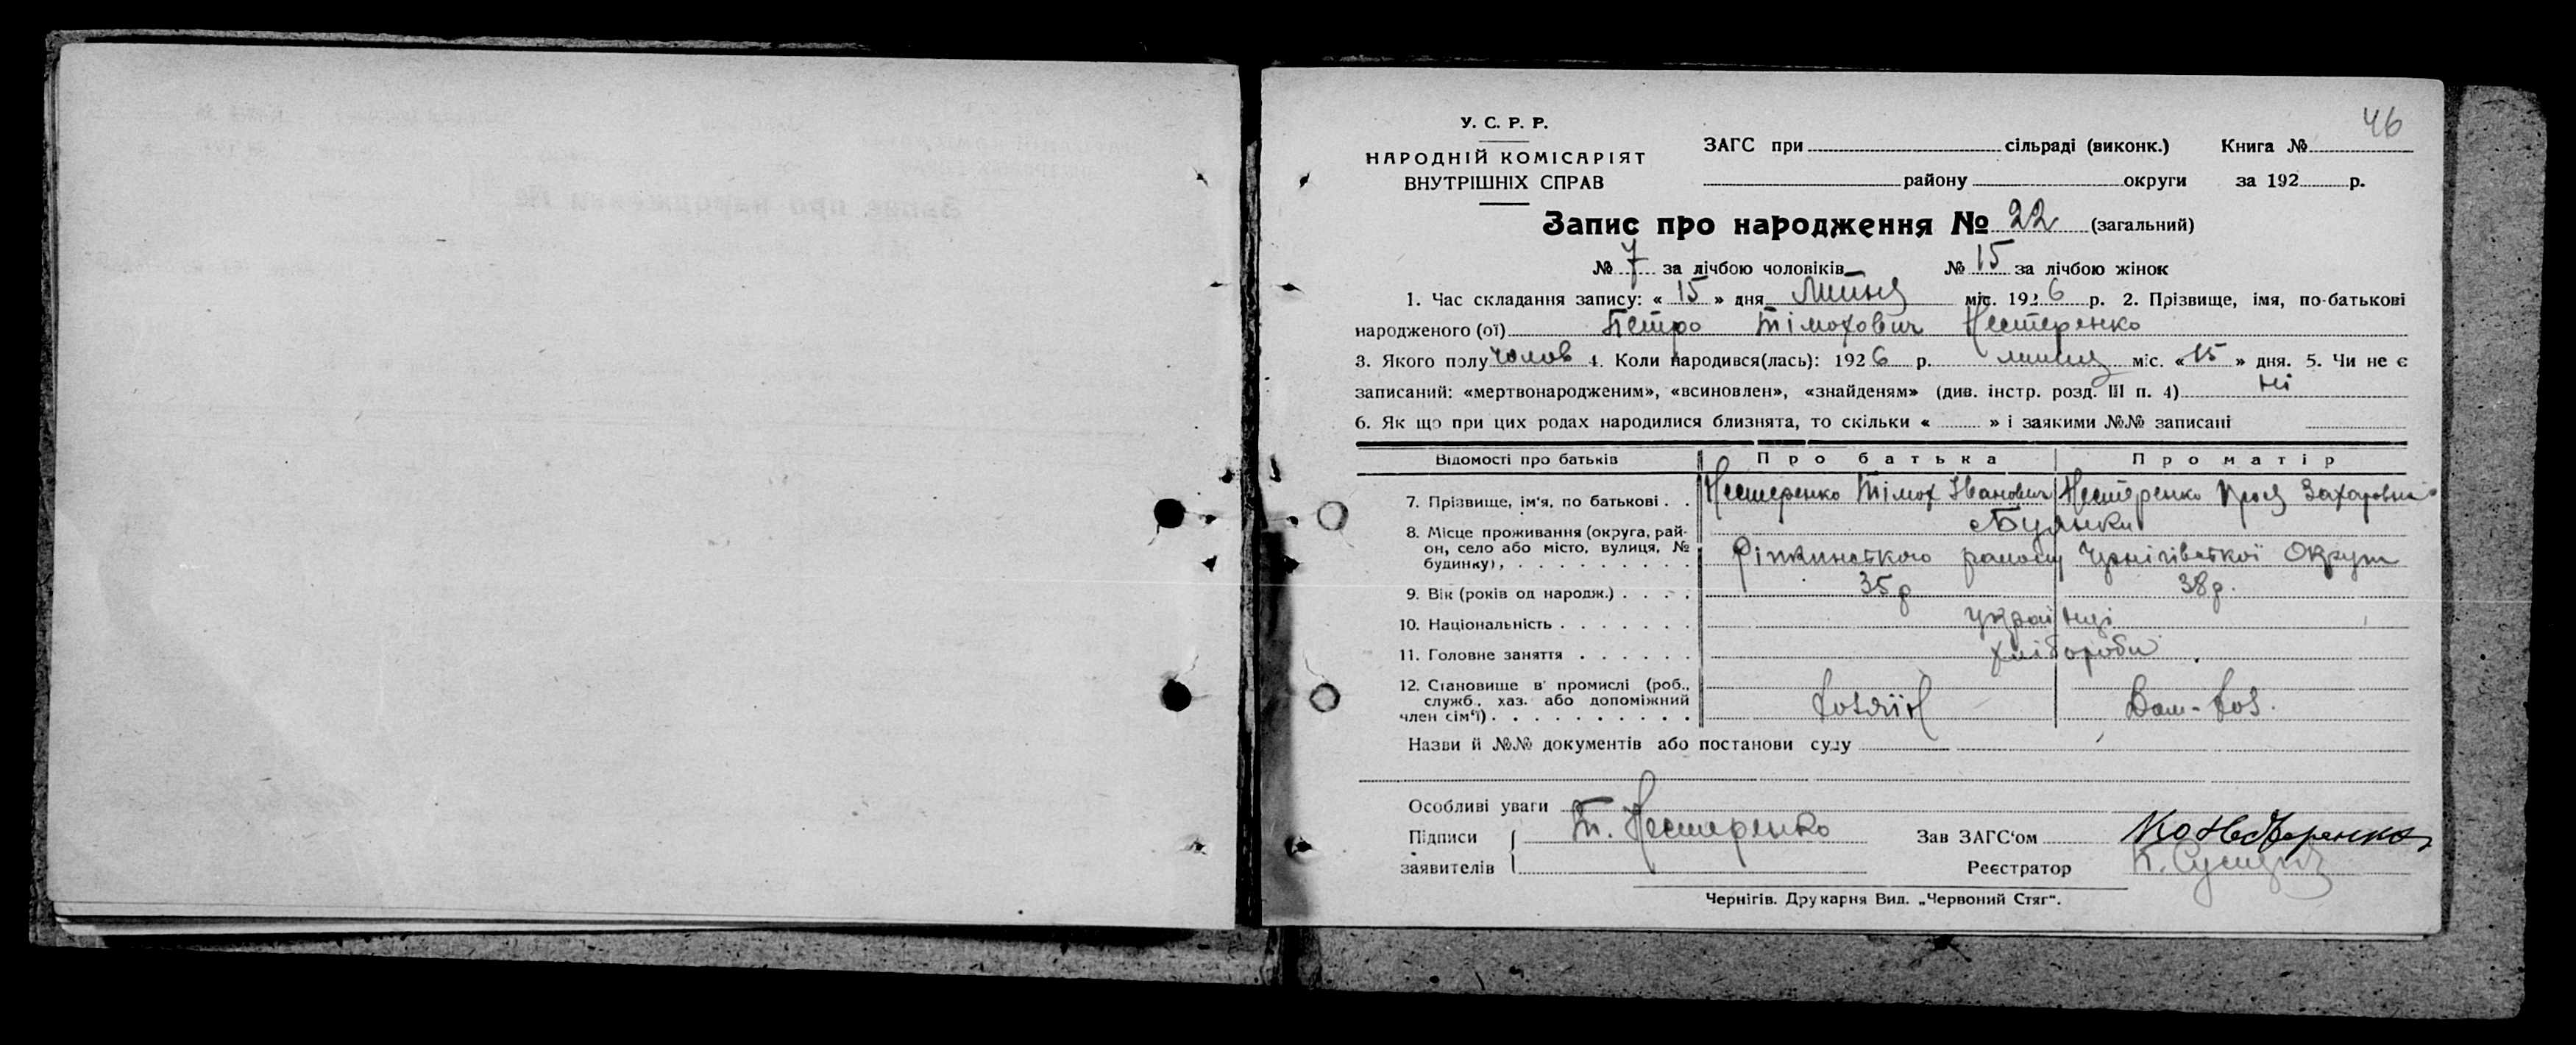 46
У. С. Р. Р.
НАРОДНІЙ КОМІСАРІЯТ
ВНУТРІШНІХ СПРАВ
ЗАГС при сільраді (виконк.) Книга №
району округи за 192 р.
Запис про народження № 22 (загальний)
№ 7 за лічбою чоловіків № 15 за лічбою жінок
1. Час складання запису: « 15 » дня Липня міс. 1926 р. 2. Прізвище, імя, по-батькові
народженого (ої) Петро Тімохович Нестеренко
3. Якого полу чолов 4. Коли народився(лась): 1926 р. липня міс. «15» дня. 5. Чи не є
записаний: «мертвонародженим», «всиновлен», «знайденям» (див. інстр. розд. III п. 4) Ні
6. Як що при цих родах народилися близнята, то скільки « » і заякими №№ записані
Відомості про батьків Про батька Про матір
7. Прізвище, ім'я, по батькові . . Нестеренко Тімох Іванович Нестеренко Захаровна
8. Місце проживання (округа, рай-
он, село або місто, вулиця, №
будинку), . . . . . . . . . .
Буянки
Ріпкинського району Чернігівської Округи
9. Вік (років од народж.) . . . . 35р 38р.
10. Національність . . . . . . . українці
11. Головне заняття . . . . . . хлібороби
12. Становище в промислі (роб.,
служб., хаз. або допоміжний
член сім'ї) . . . . . . . . . .
Хозяїн Дом-хоз.
Назви й №№ документів або постанови суду
Особливі уваги
Підписи Т. Нестеренко Зав ЗАГС'ом
заявителів Реєстратор
Чернігів. Друкарня Вид. „Червоний Стяг".